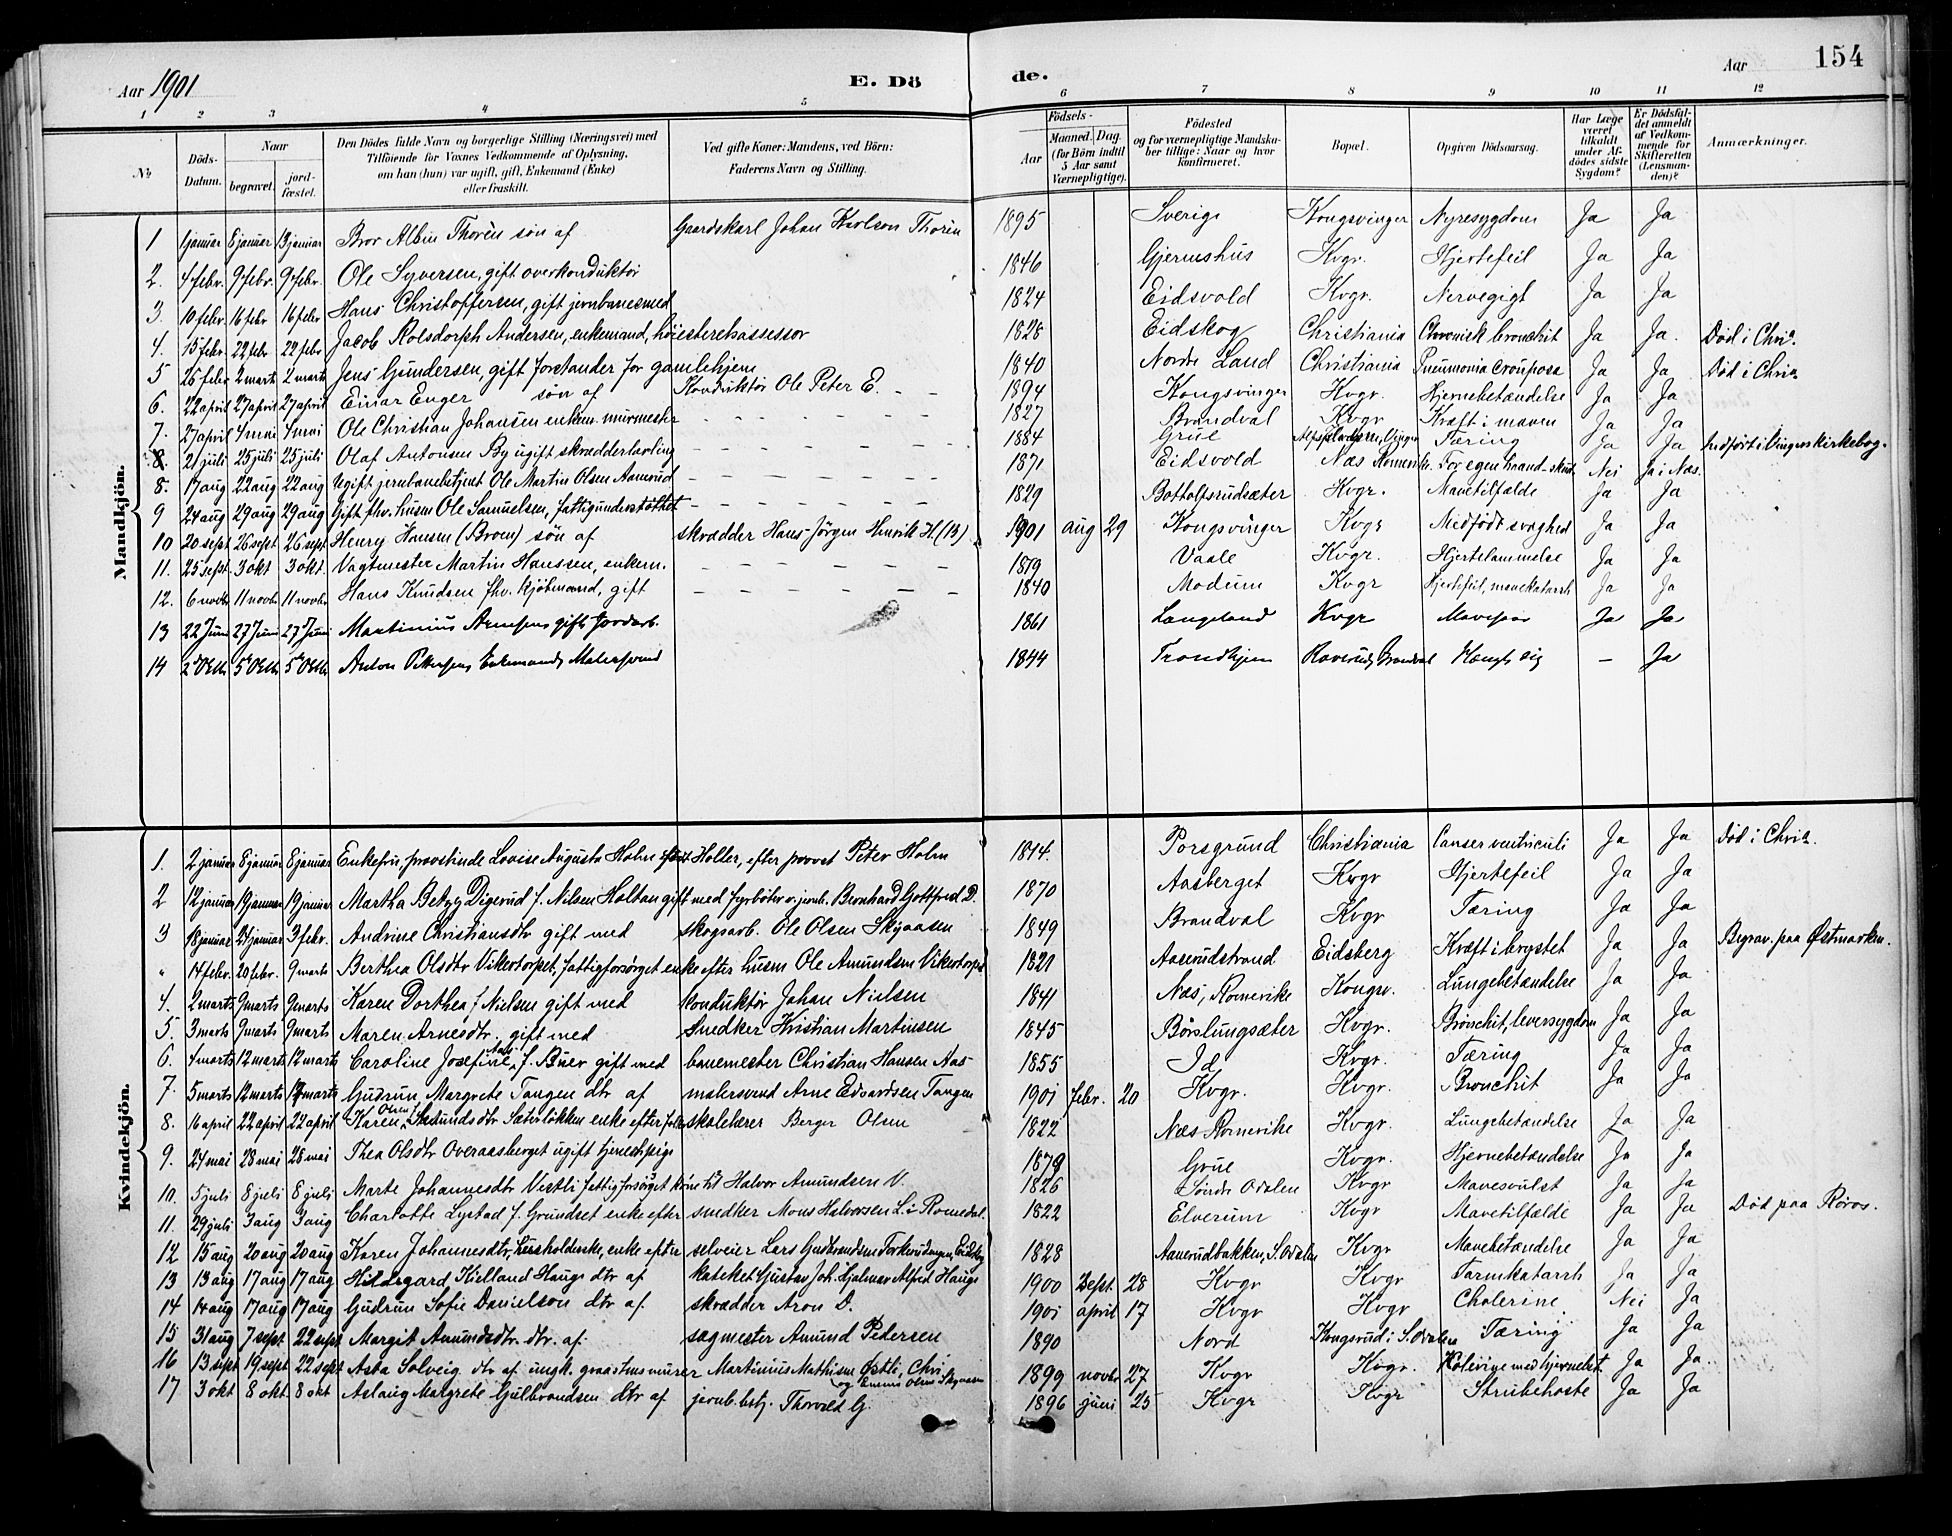 154
Aar 1901 E. Dö de. Aar
1 2 3 4 5 6 7 8 9 10 11 12
№ Döds-Datum. Naar begravet. jordfæstet. Den Dödes fulde Navn og borgerlige Stilling (Næringsvei) med Tilföiende for Voxnes Vedkommende af Oplysning, om han (hun) var ugift, gift, Enkemand (Enke) eller fraskilt. Ved gifte Koner: Mandens, ved Börn: Faderens Navn og Stilling. Födsels- Aar Maaned. Dag. (for Börn indtil 5 Aar samt Værnepligtige). Födested og for værnepligtige Mandskaber tillige: Naar og hvor konfirmeret. Bopæl. Opgiven Dödsaarsag. Har Læge været tilkaldt under Afdödes sidste Sygdom? Er Dödsfaldet anmeldt af Vedkommende for Skifteretten (Lensmanden)? Anmærkninger.
Mandkjön.
1 1 januar 8 januar 13 januar Bror Albin Thorèn søn af Gaardskarl Johan Karlson Thorèn 1895 Sverige Kongsvinger Nyresygdom Ja Ja
2. 4 febr. 9 febr. 9 febr. Ole Syversen, gift overkonduktør 1846 Gjermshus Kvgr. Hjertefeil Ja Ja
3. 10 febr. 16 febr 16 febr Hans Christoffersen, gift jernbanesmed 1824 Eidsvold Kvgr. Nervegigt Ja Ja
4. 15 febr. 22 febr 22 febr Jacob Rolsdorph Andersen, enkemand, høiesteretsassessor 1828 Eidskog Christiania Chronisk bronchit Ja Ja. Död i Chria.
5 26 febr. 2 marts 2 marts Jens Gundersen, gift forstander for gamlehjem 1840 Nordre Land Christiania Pneumonia crouposa Ja Ja Död i Chria
6. 22 april 27 april 27 april Einar Enger søn af Konduktør Ole Peter E. 1894 Kongsvinger Kvgr. Hjernebetændelse Ja Ja
7. 27 april 4 mai 4 mai Ole Christian Johansen enkem. murmester 1827 Brandval Kvgr Kræft i maven Ja Ja
8. 21 juli 25 juli 25 juli Olaf Antonsen By ugift skrædderlærling 1884 Grue Vinger Tæring Ja Ja Indført i Vingers kirkebog.
8. 17 aug 22 aug 22 aug Ugift jernbanebetjent Ole Martin Olsen Aamerud 1871 Eidsvold Næs Romerike. For egen haand-skudt Nei Ja i Næs.
9 24 aug 29 aug 29 aug Gift fhv. husm Ole Samuelsen, fattigunderstøttet 1829 Bottolfsrudsæter Kvgr. Mavetilfælde Ja Ja
10 20 sept 26 sept 26 sept Henry Hansen (Broen) søn af skrædder Hans Jörgen Henrik H. (B) 1901 aug 29 Kongsvinger Kvgr Medfødt svaghed Ja Ja
11. 25 sept. 3 okt 3 okt. Vagtmester Martin Hanssen, enkem. 1819 Vaale Kvgr. Hjertelammelse Ja Ja
12. 6 novbr 11 novbr 11 novbr Hans Knudsen fhv. kjöbmand, gift 1840 Modum Kvgr Hjertefeil, mavekatarrh Ja Ja
13 22 Juni 27 Juni 27 Juni Martinius Arnesen gift Jordarb. 1861 Langeland Kvgr Mavesaar Ja Ja
14 2 Oktb 5 Oktb 5 Oktb Anton Pettersen Enkemand, Malersvend 1844 Trondhjem Roverud, Brandval Hængt sig – Ja
Kvindekjön.
1. 2 januar 8 januar 8 januar Enkefru, provstinde Lovise Augusta Holm født Holler, efter provst Peter Holm 1814. Porsgrund Christiania Canser ventriculi Ja Ja Död i Chria.
2 12 januar 19 januar 19 januar Martha Betzy Digerud f. Nilsen Holtan gift med fyrbøter v. jernb. Bernhard Gottfred D. 1870 Aasberget Kvgr Hjertefeil Ja Ja
3 18 januar 24 januar 3 febr. Andrine Christiansdtr gift med skogsarb. Ole Olsen Skyaasen 1849 Brandval Kvgr Tæring Ja Ja
" 14 febr. 20 febr. 9 marts Berthea Olsdtr Vikertorpet, fattigforsørget enke efter husm Ole Amundsen Vikertorpet 1821 Aaserudstrand Eidsberg Kræft i brystet Ja Ja Begrav. paa Østmarken.
4. 2 marts 9 marts 9 marts Karen Dorthea f. Nielsen gift med konduktør Johan Nielsen 1841 Næs, Romerike Kongsv. Lungebetændelse Ja Ja
5. 3 marts 9 marts 9 marts Maren Arnesdtr. gift med Snedker Kristian Martinsen 1845 Børslungsæter Kvgr. Bronchit, leversygdom Ja Ja
6. 4 marts 12 marts 12 marts Caroline Josefine Aas f. Buer gift med banemester Christian Hansen Aas 1855 Id Kvgr. Tæring Ja Ja
7. 5 marts 12 marts 12 marts Gudrun Margrete Tangen dtr af malersvend Arne Edvardsen Tangen 1901 febr. 20 Kvgr. Kvgr. Bronchit Ja Ja
8. 16 april 22 april 22 april Karen Olsen f. Sæterløkken enke efter skolelærer Berger Olsen 1822 Næs Romerike Kvgr. Lungebetændelse Ja Ja
9. 24 mai 28 mai 28 mai Thea Olsdtr Overaasberget ugift tjenestepige 1879 Grue Kvgr. Hjernebetændelse Ja Ja
10. 5 juli 8 juli 8 juli Marte Johannesdtr Vestli fattigforsørget kone til Halvor Amundsen V. 1826 Søndre Odalen Kvgr Mavesvulst Ja Ja
11. 29 juli 3 aug 3 aug Charlotte Lystad f. Grundset enke efter snedker Mons Halvorsen L. i Romedal. 1822 Elverum Kvgr Mavetilfælde Ja Ja Död paa Røros.
12 15 aug 20 aug 20 aug Karen Johannesdtr, enke efter selveier Lars Gudbrandsen 1828 Aanerudbakken, S. Odalen Kvgr Mavebetændelse Ja Ja
13 13 aug 17 aug 17 aug Hildegard Kielland Hauge dtr af kateket Gustav Joh. Hjalmar Alfred Hauge 1900 Sept. 28 Kvgr Kvgr Tarmkatarrh Ja Ja
14 14 aug 17 aug 17 aug Gudrun Sofie Danielson dtr af. skrædder Aron D. 1901 april 17 Kvgr Kvgr Cholerine. Nei Ja
15 31 aug 7 sept. 22 sept Margit Amundsdtr. dtr. af. sagmester Amund Pedersen 1890 Nord Kongsrud i S. Odalen Tæring Ja Ja
16 13 sept 19 sept 22 sept Asta Solveig dtr af ungk. graastensmurer Martinius Mathisen Østli, Chri. og Emma Olsen Skyaasen 1899 novbr 27 Kvgr Kvgr. Kolerine med hjernebet. Ja Ja
17 3 okt 8 okt. 8 okt Aslaug Margrete Gulbrandsen dtr af jernb. betj. Thorvald G. 1896 juni 25 Kvgr Kvgr Strubehoste Ja Ja